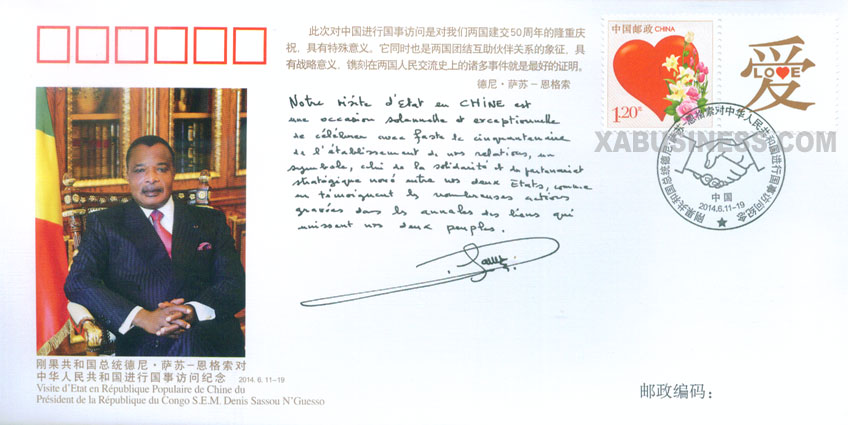 此次对中国进行国事访问是对我们两国建交50周年的隆重庆
祝，具有特殊意义。它同时也是两国团结互助伙伴关系的象征，具
有战略意义，镌刻在两国人民交流史上的诸多事件就是最好的证明。
德尼·萨苏－恩格索
Notre visite d'Etat en CHINE est
une occasion solennelle et exceptionnelle
de célébrer avec faste le cinquantenaire
de l'établissement de nos relations, un
symbole, celui de la solidarité et du partenariat
stratégique noué entre nos deux Etats, comme
en témoignent les nombreuses actions
gravées dans les annales des liens qui
unissent nos deux peuples.
中国邮政 CHINA
1.20元
爱
LOVE
XABUSINESS.COM
刚果共和国总统德尼·萨苏－恩格索对中华人民共和国进行国事访问纪念
中国
2014.6.11-19
刚果共和国总统德尼·萨苏－恩格索对
中华人民共和国进行国事访问纪念 2014.6.11-19
Visite d'Etat en République Populaire de Chine du
Président de la République du Congo S.E.M. Denis Sassou N'Guesso
邮政编码：